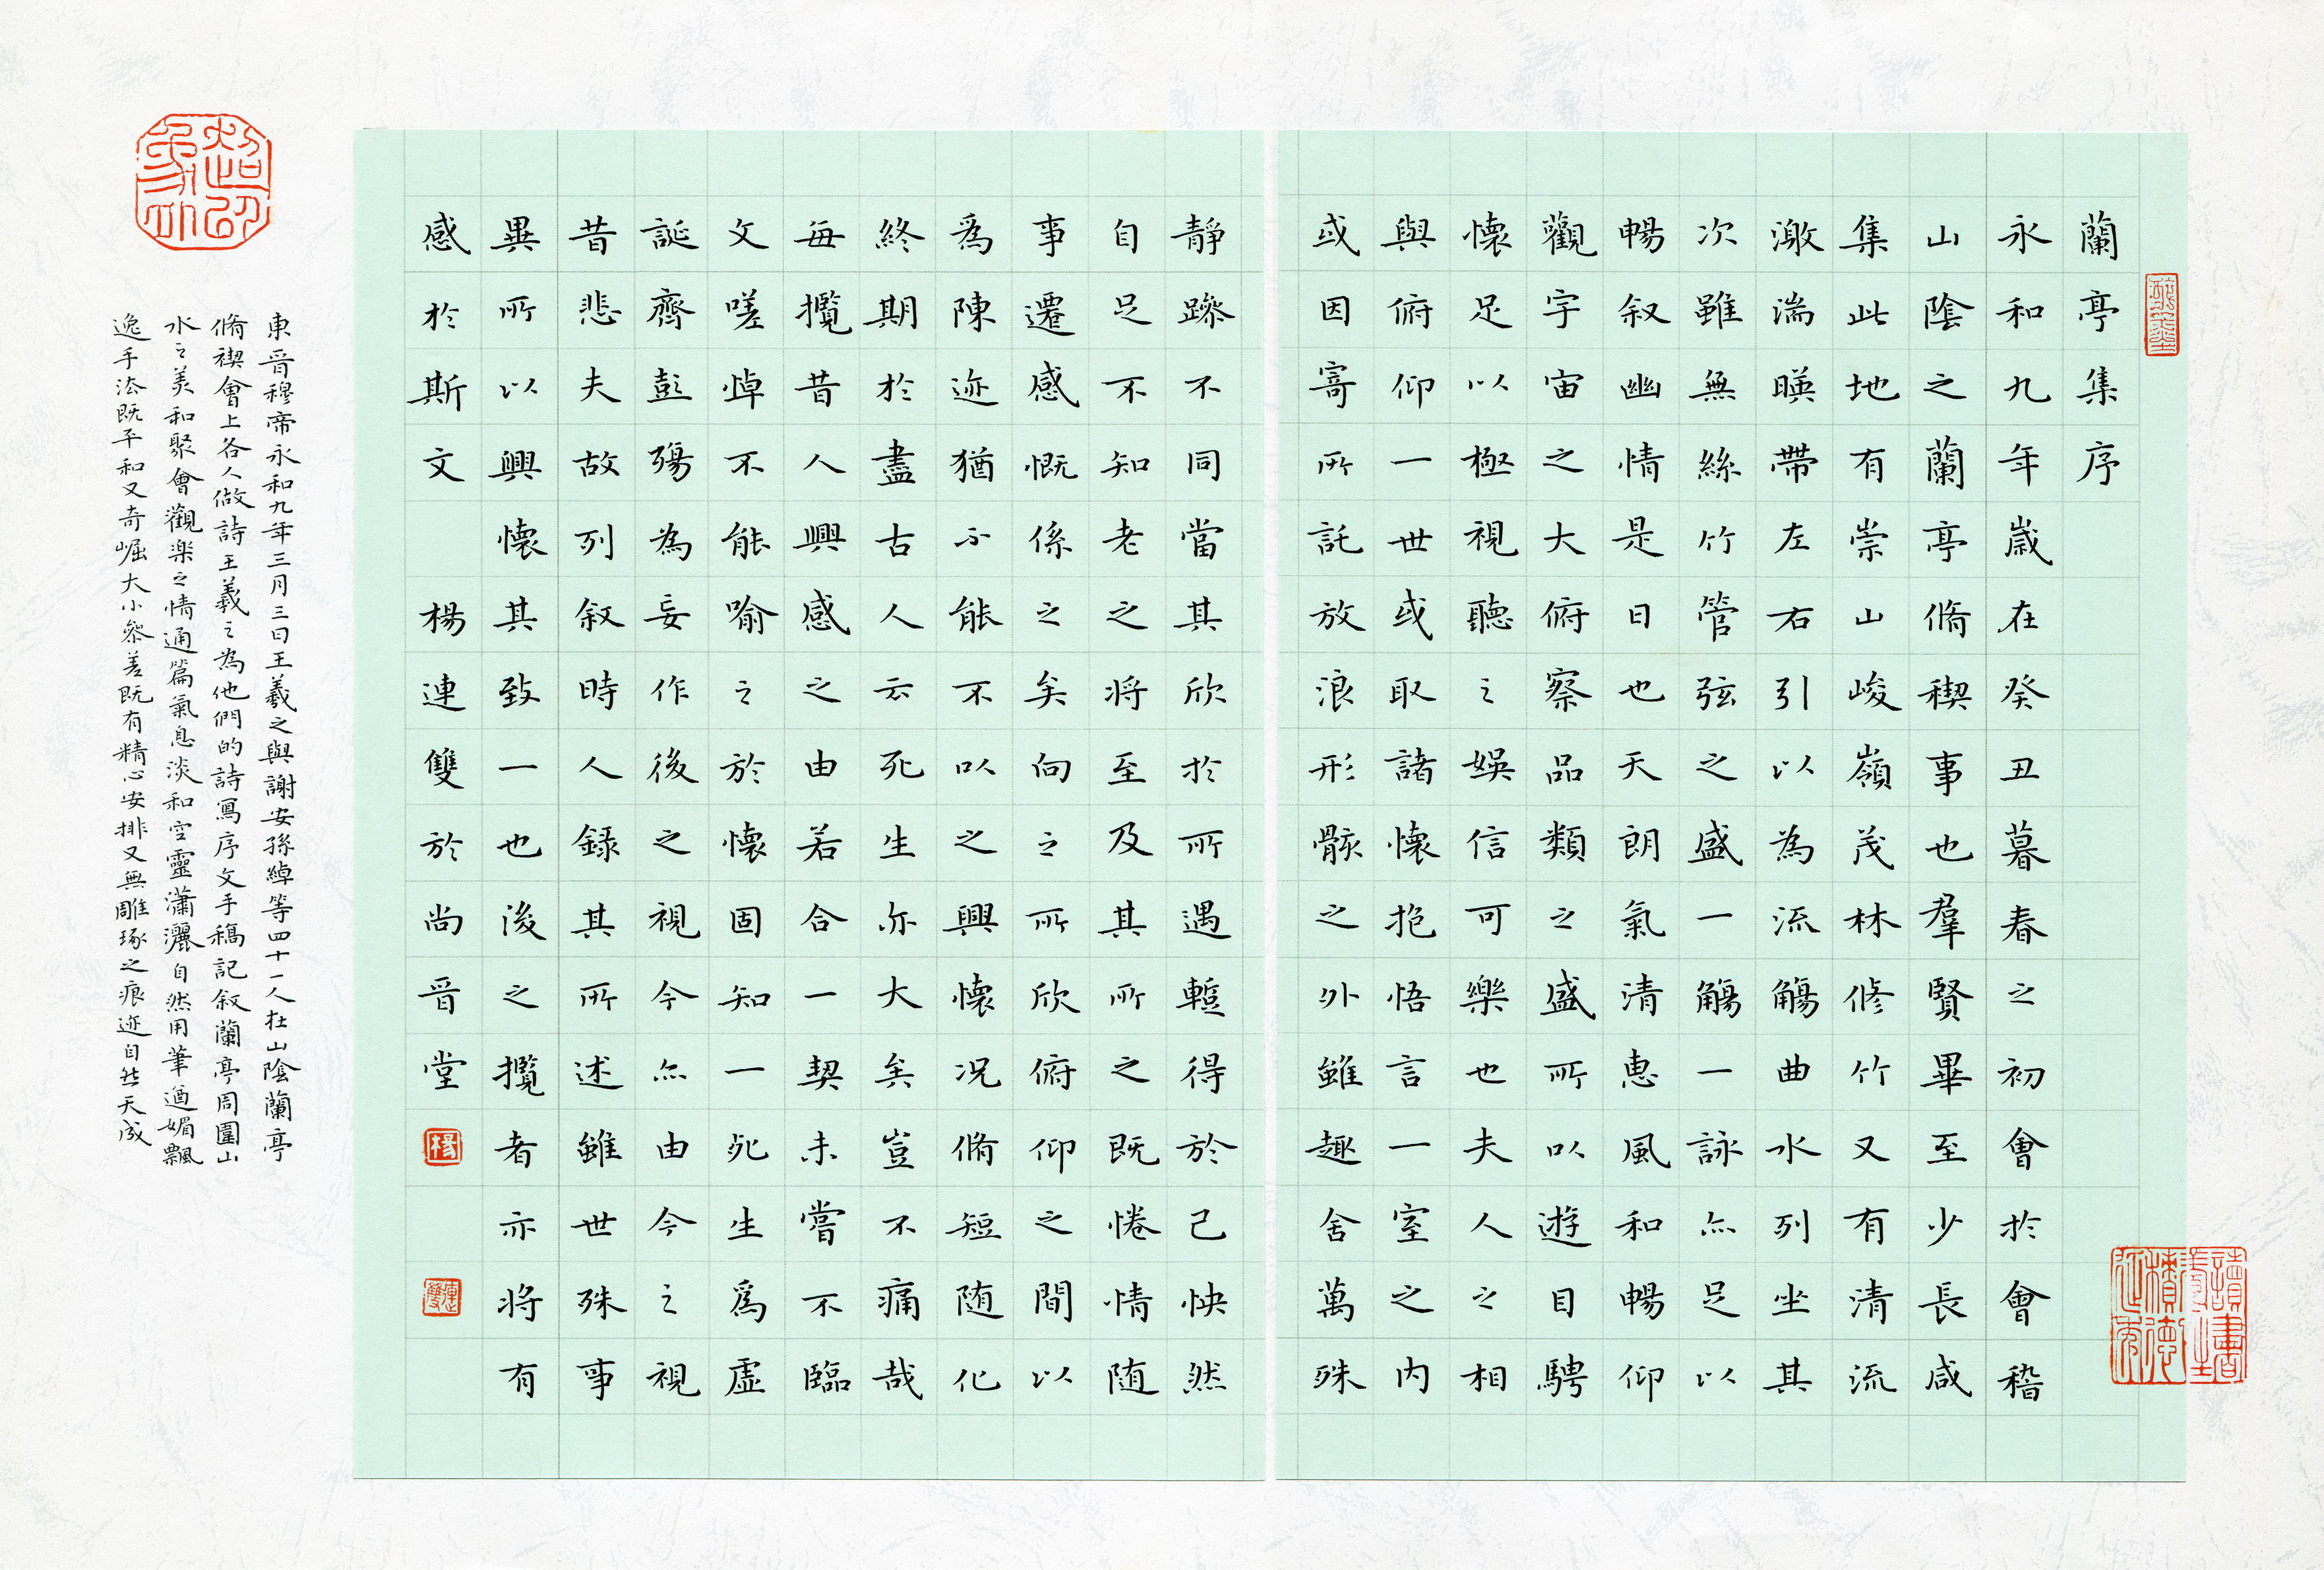 蘭亭集序
永和九年歲在癸丑暮春之初會於會稽
山陰之蘭亭脩稧事也羣賢畢至少長咸
集此地有崇山峻嶺茂林修竹又有清流
激湍暎帶左右引以為流觴曲水列坐其
次雖無絲竹管弦之盛一觴一詠亦足以
暢叙幽情是日也天朗氣清惠風和暢仰
觀宇宙之大俯察品類之盛所以遊目騁
懷足以極視聽之娛信可樂也夫人之相
與俯仰一世或取諸懷抱悟言一室之内
或因寄所託放浪形骸之外雖趣舍萬殊
靜躁不同當其欣於所遇蹔得於己怏然
自足不知老之将至及其所之既惓情随
事遷感慨係之矣向之所欣俯仰之間以
爲陳迹猶不能不以之興懷況脩短随化
終期於盡古人云死生亦大矣豈不痛哉
每攬昔人興感之由若合一契未嘗不臨
文嗟悼不能喻之於懷固知一死生爲虛
誕齊彭殤為妄作後之視今亦由今之視
昔悲夫故列叙時人録其所述雖世殊事
異所以興懷其致一也後之攬者亦将有
感於斯文 楊連雙於尚晉堂
楊
連雙
東晉穆帝永和九年三月三日王羲之與謝安孫綽等四十一人在山陰蘭亭
脩禊會上各人做詩王羲之為他們的詩寫序文手稿記叙蘭亭周圍山
水之美和聚會觀樂之情通篇氣息淡和空靈瀟灑自然用筆遒媚飄
逸手法既平和又奇崛大小參差既有精心安排又無雕琢之痕迹自然天成
超以象外
讀書養性積德延年